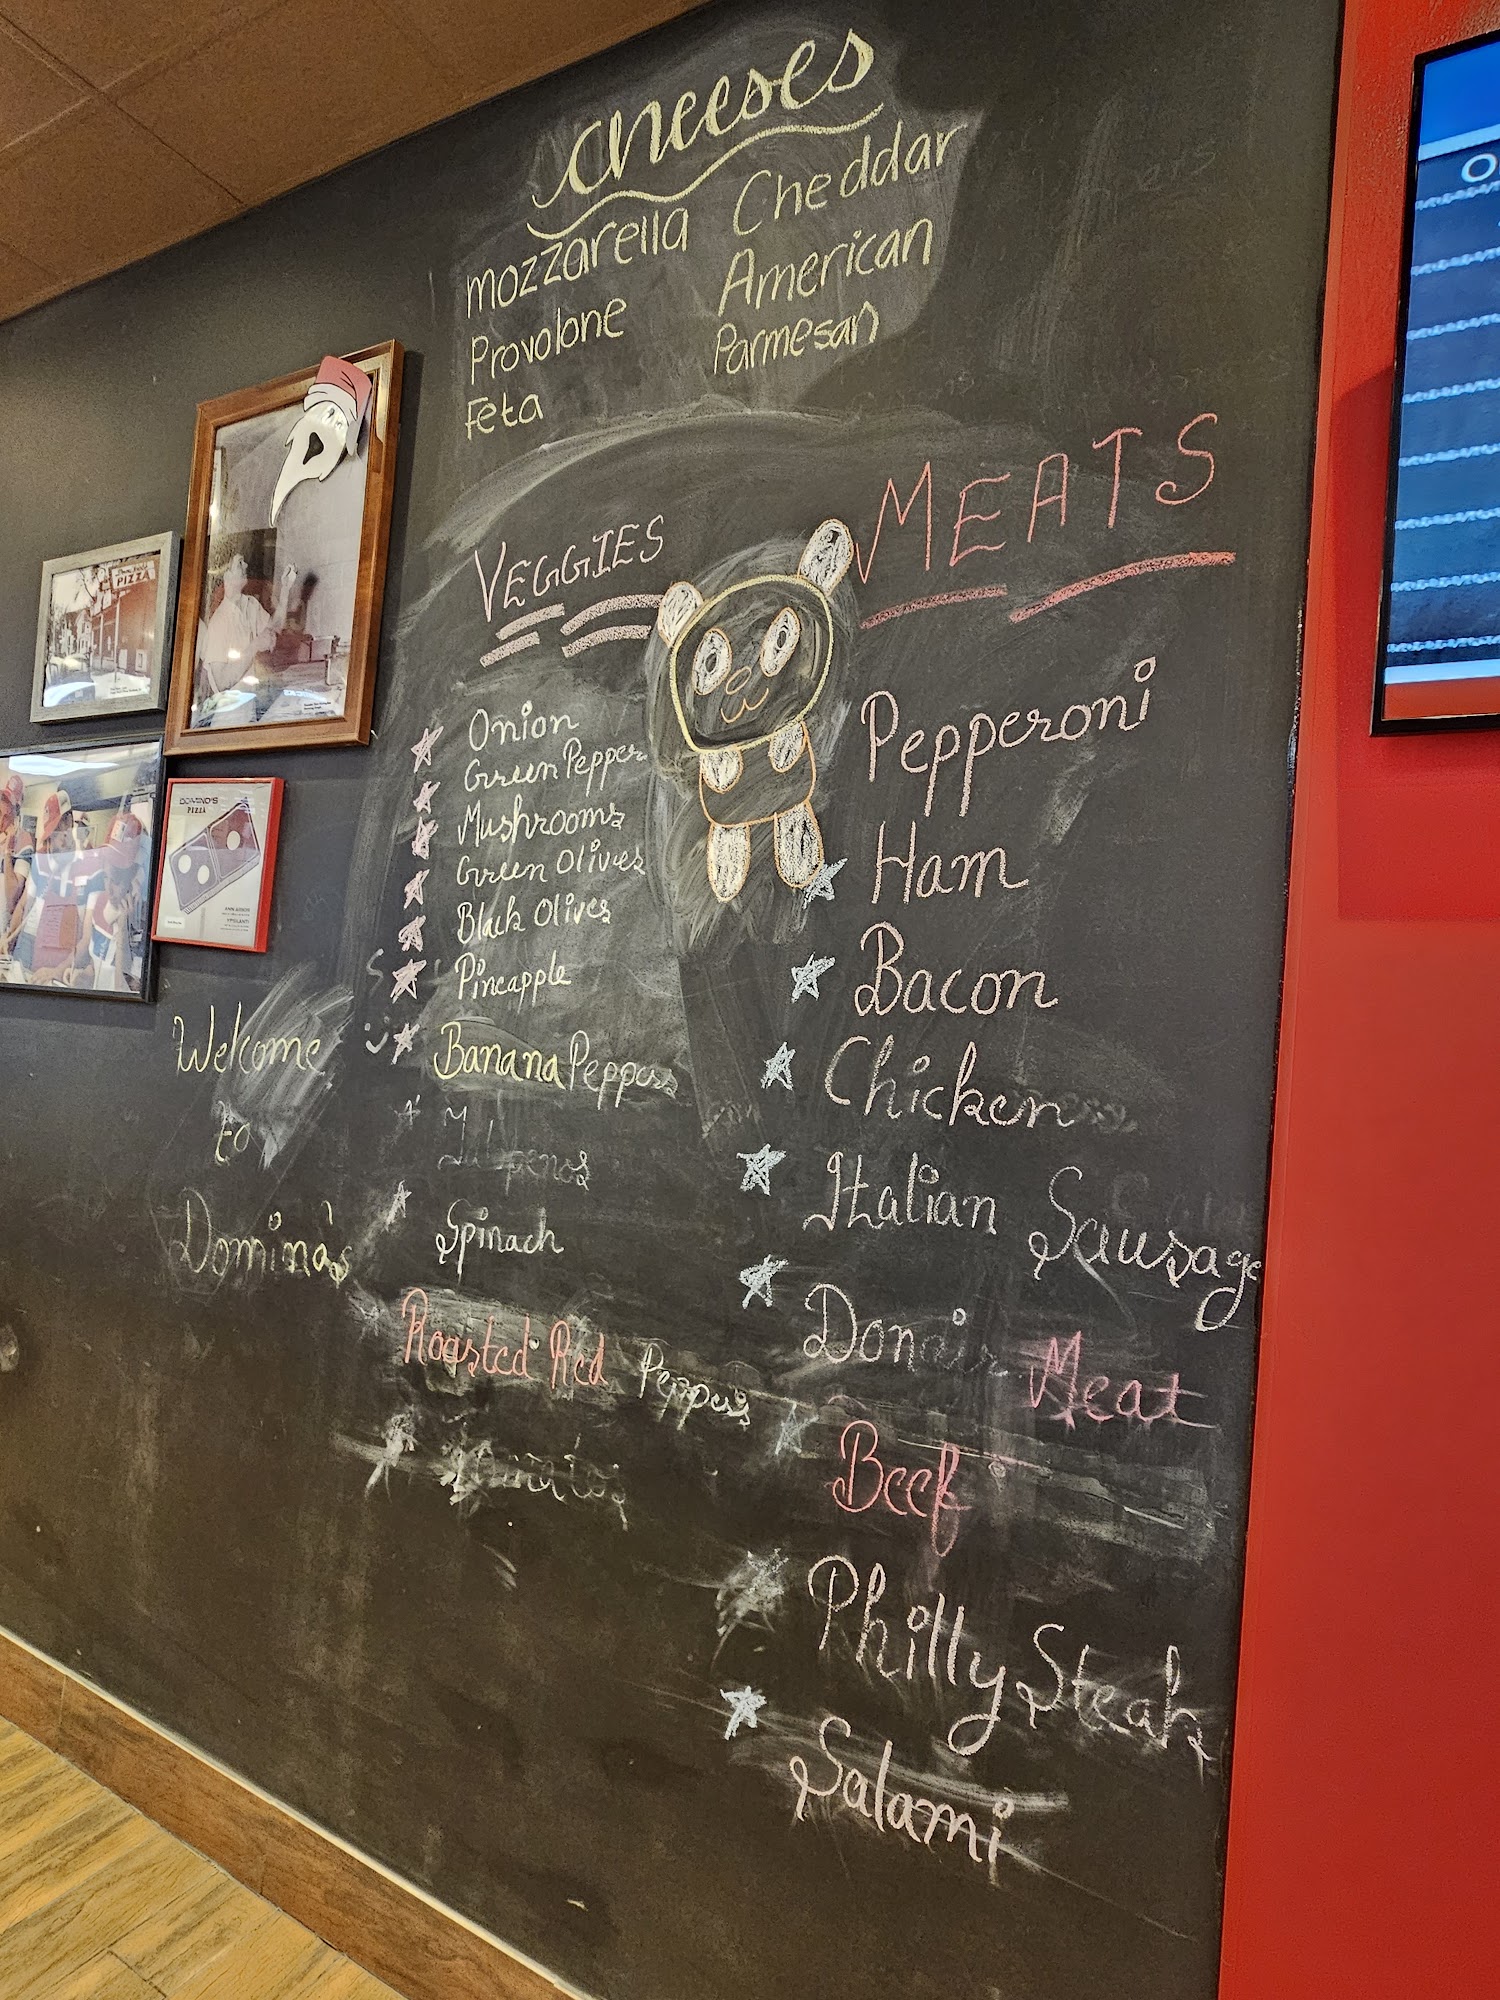 cheeses
mozzarella
Provolone
Feta
Cheddar
American
Parmesan
VEGGIES
Onion
Green Pepper
Mushrooms
Green Olives
Black Olives
Pineapple
Banana Peppers
Spinach
Roasted Red Peppers
MEATS
Pepperoni
Ham
Bacon
Chicken
Italian Sausage
Donair Meat
Beef
Philly Steak
Salami
Welcome
to
Domino's
PIZZA
DOMINO'S
PIZZA
ANN ARBOR
YPSILANTI